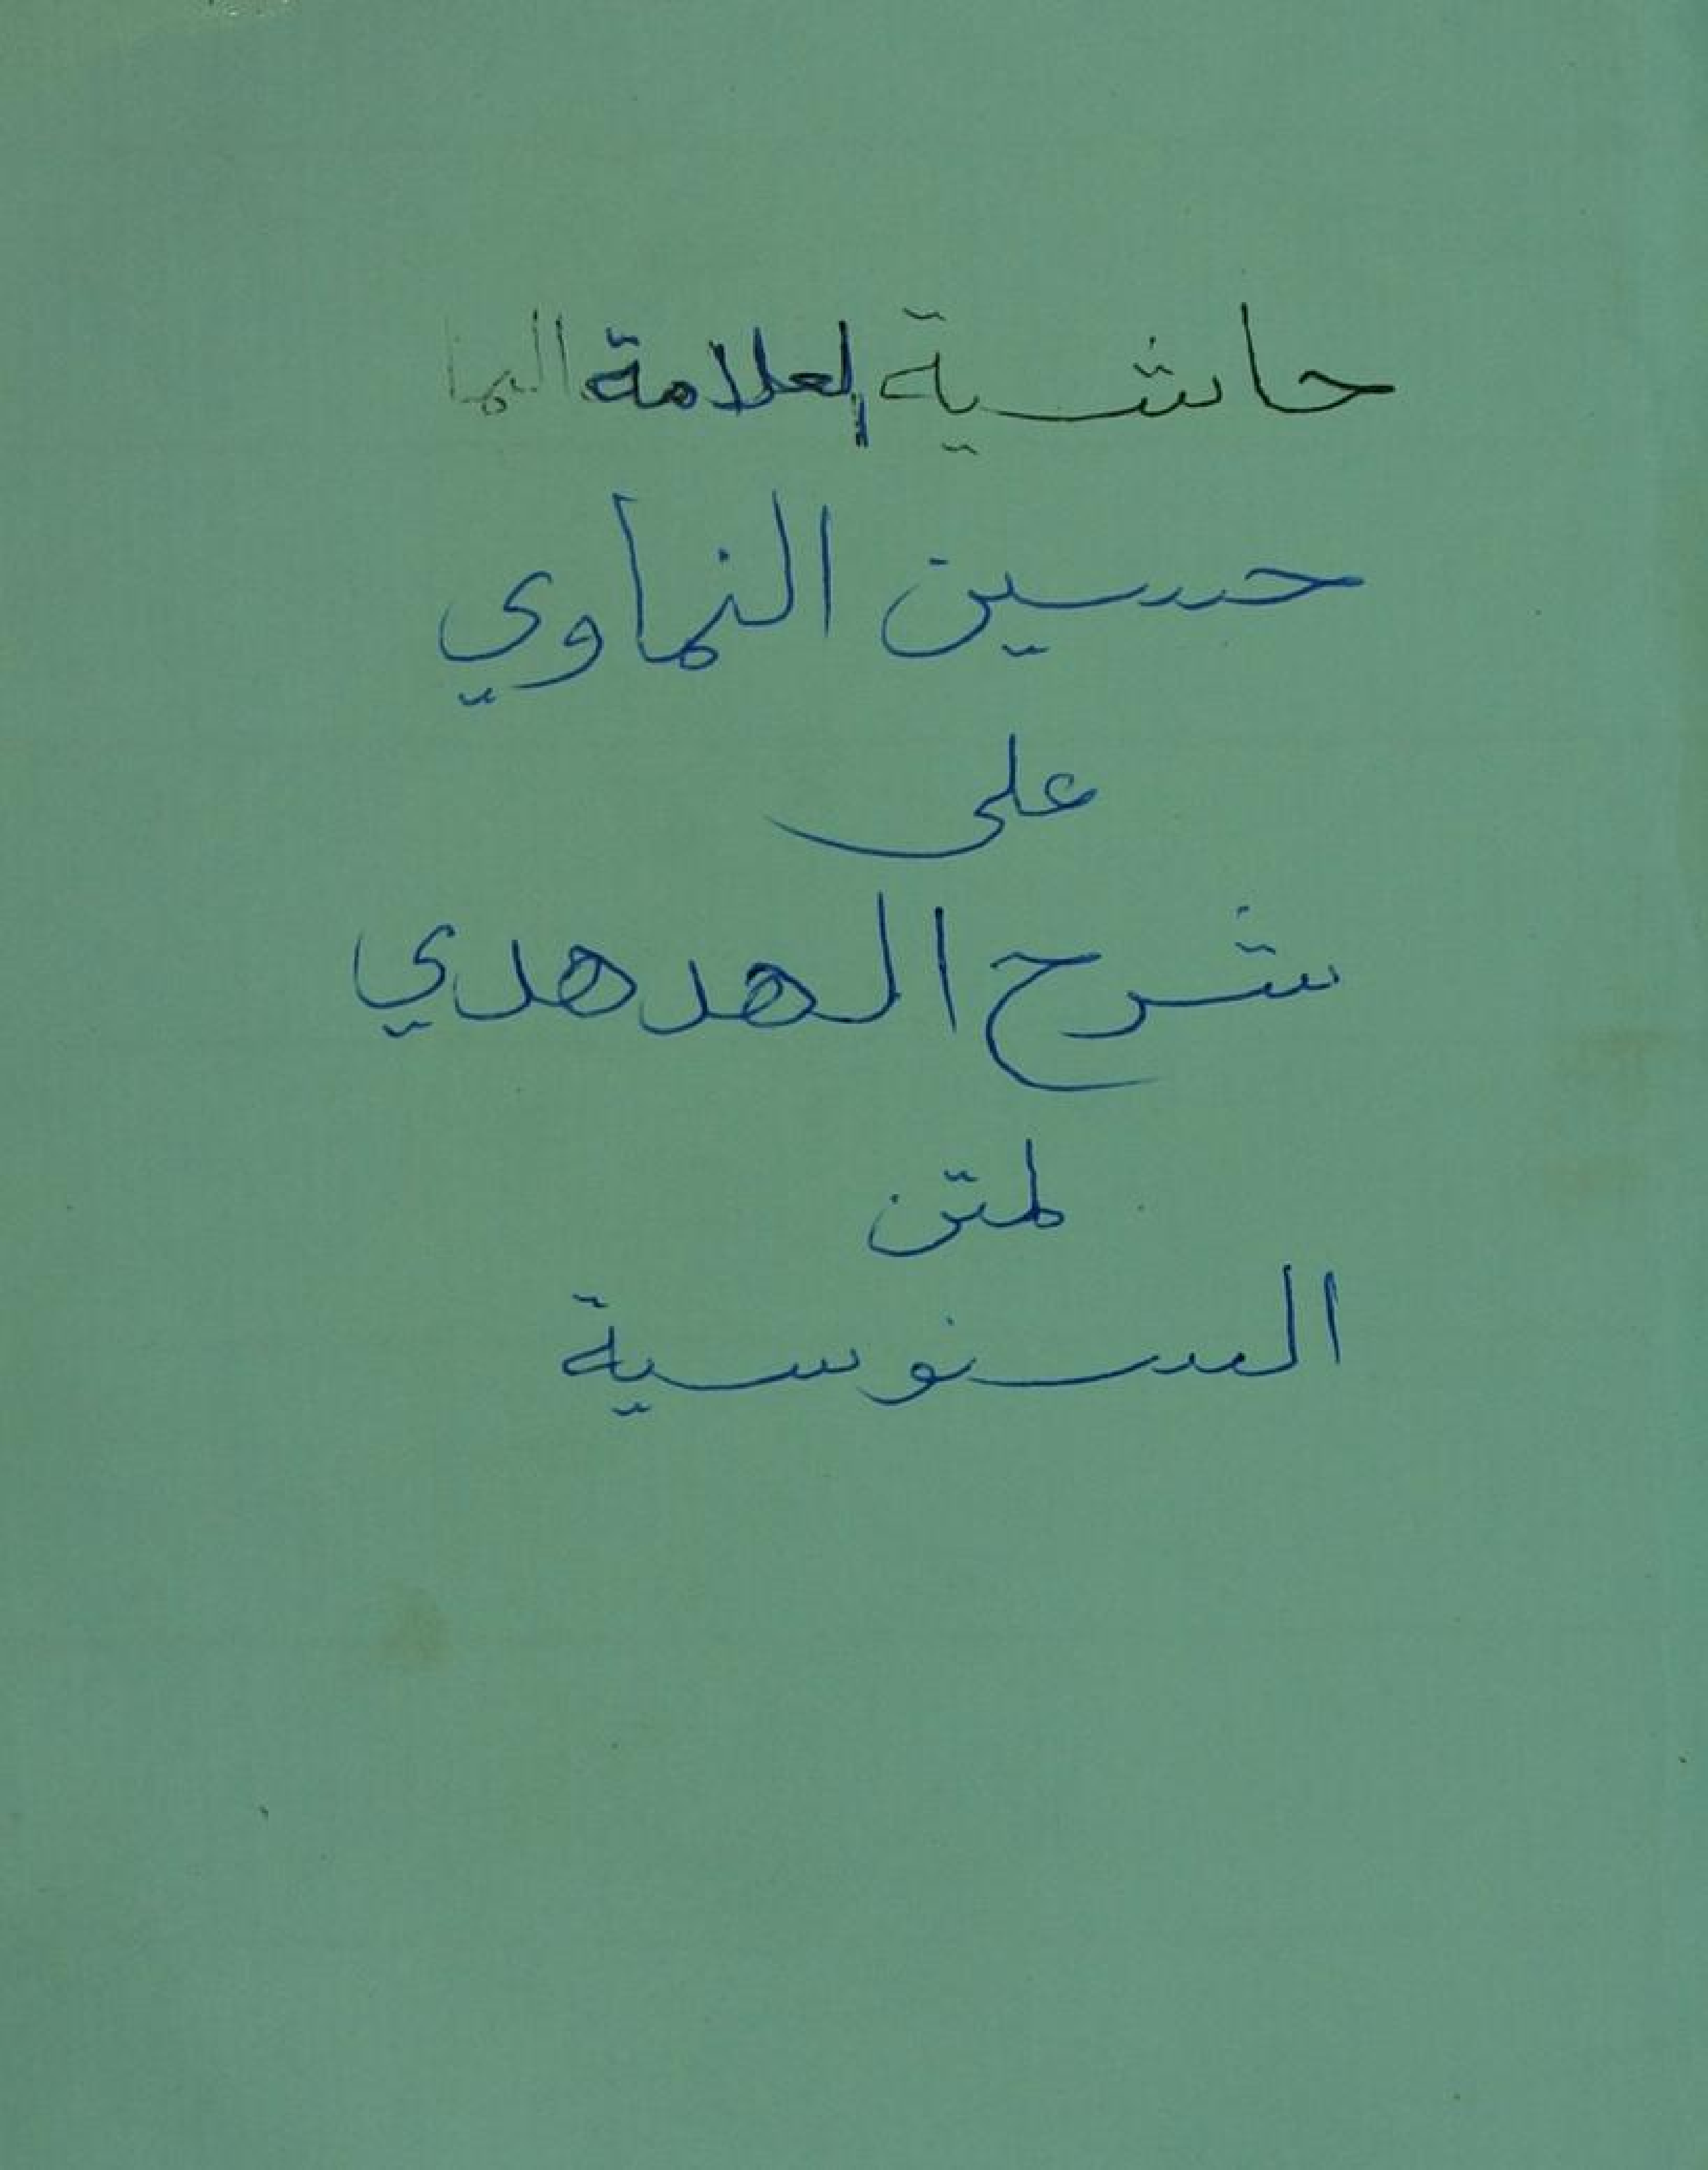 حاشية العلامة
حسين النماوي
على
شرح الهدهدي
لمتن
السنوسية